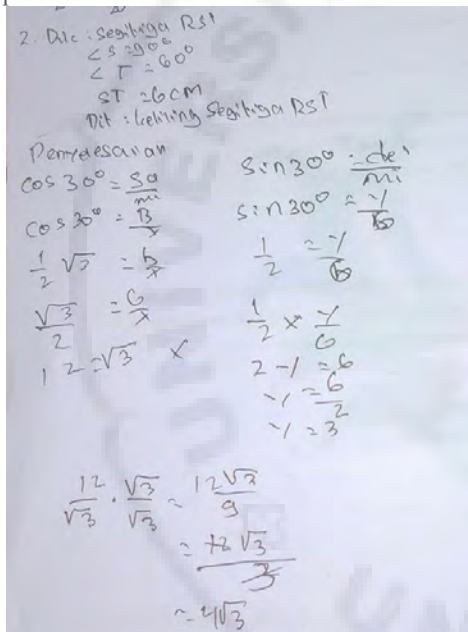 2. Dik : Segitiga RST
< S = 90°
< T = 60°
ST = 6 cm
Dit : keliling Segitiga RST
Penyelesaian
cos 30° = sa/mi
cos 30° = B/x
1/2 √3 = b/x
√3/2 = 6/x
12 = √3 x
sin 30° = de/mi
sin 30° = y/6
1/2 = y/6
1/2 × y/6
2 y = 6
y = 6/2
y = 3
12/√3 · √3/√3 = 12√3/9
= 12√3/3
= 4√3
UNIVERSI